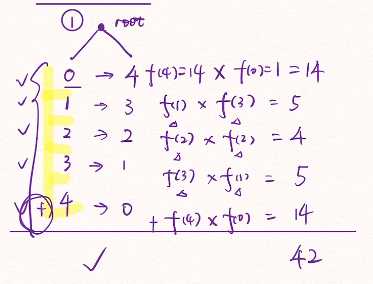 ① root
0 → 4 f(4)=14 × f(0)=1 = 14
1 → 3 f(1) × f(3) = 5
2 → 2 f(2) × f(2) = 4
3 → 1 f(3) × f(1) = 5
(+) 4 → 0 + f(4) × f(0) = 14
✓ 42